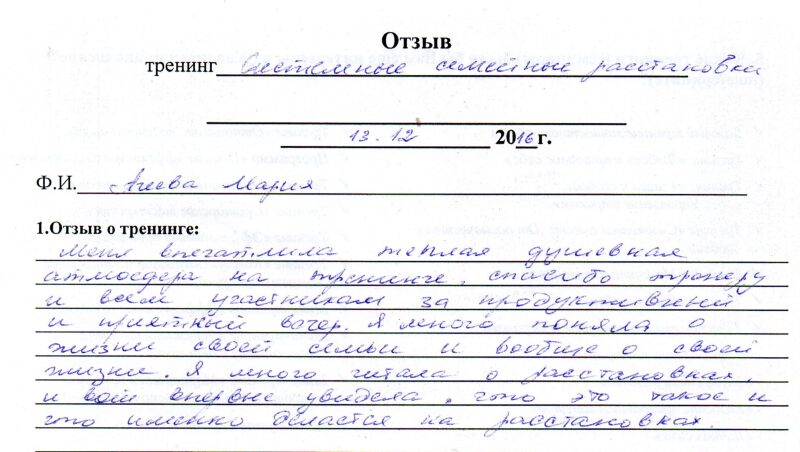 Отзыв
тренинг Системные семейные расстановки
13.12 2016 г.
Ф.И. Агеева Мария
1.Отзыв о тренинге:
Меня впечатлила теплая душевная
атмосфера на тренинге, спасибо тренеру
и всем участникам за продуктивный
и приятный вечер. Я много поняла о
жизни своей семьи и вообще о своей
жизни. Я много читала о расстановках,
и вот впервые увидела, что это такое и
что именно делается на расстановках.